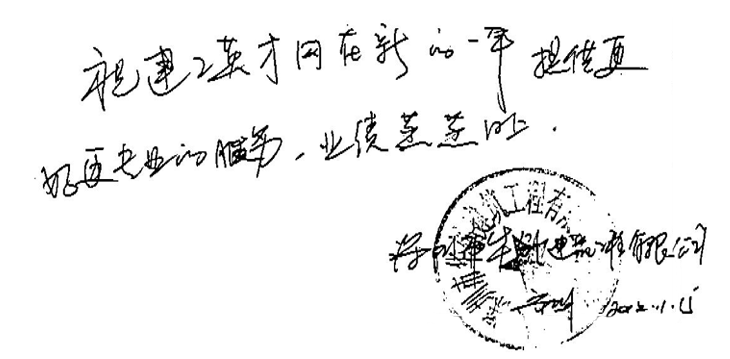 祝建工英才网在新的一年提供更
好更专业的服务，业绩蒸蒸日上.
建筑工程有限公司
建筑工程有